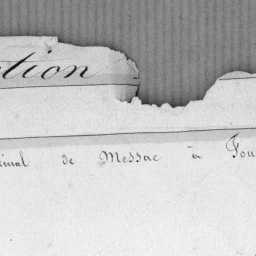 ction
inal de Messac à Fou